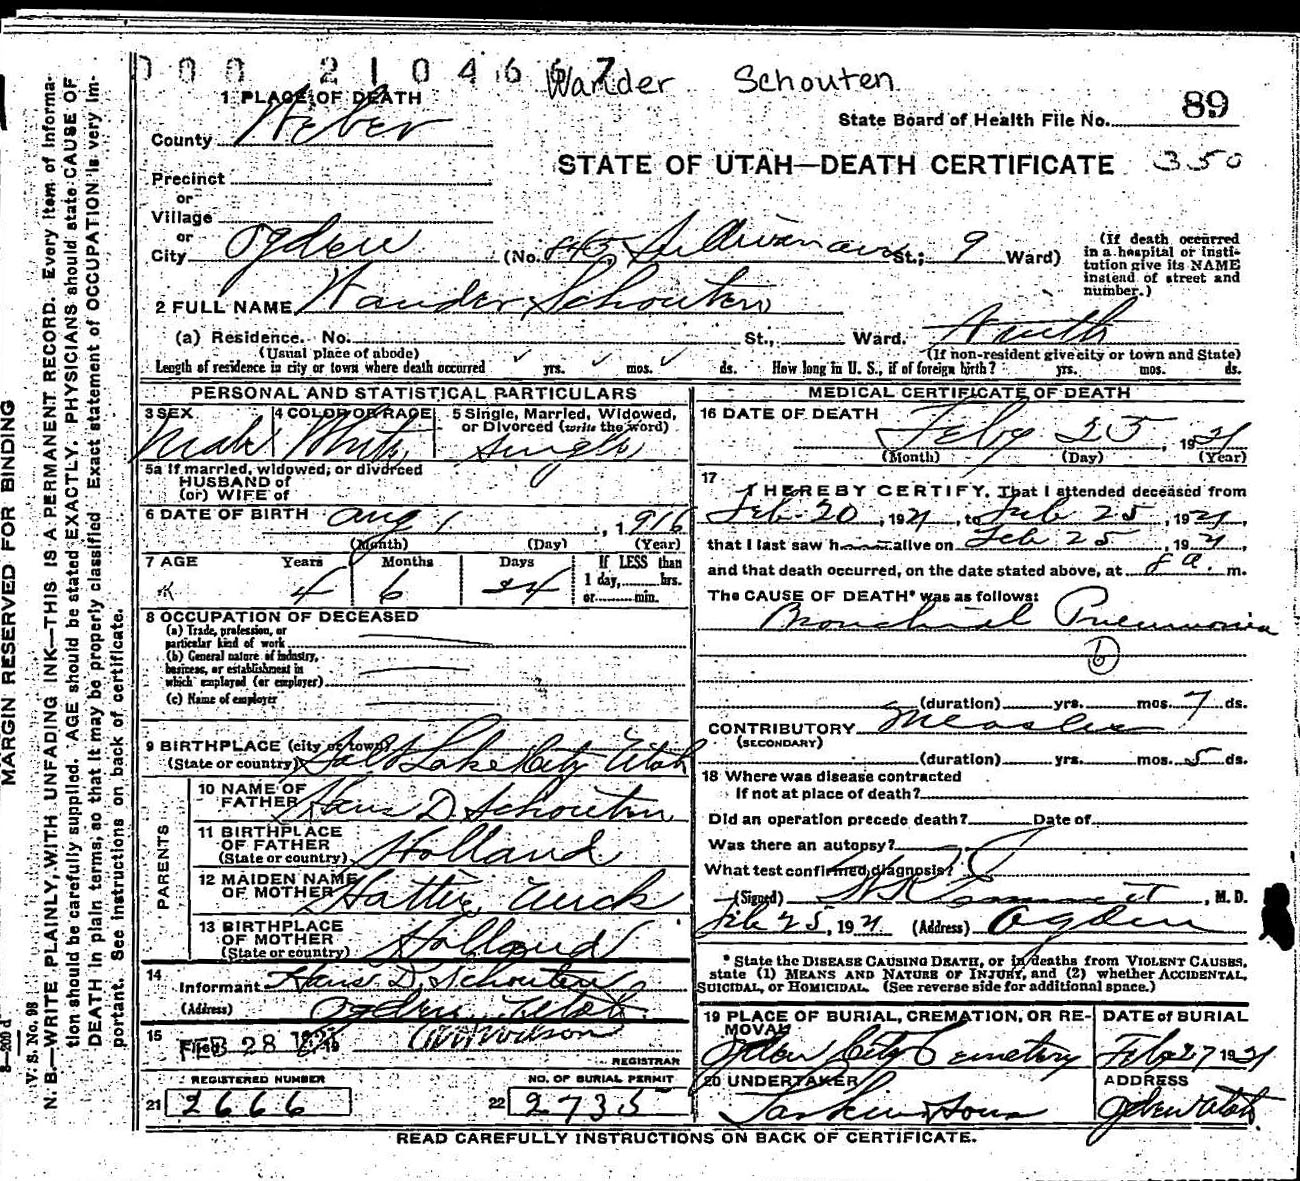 0002104667 Wander Schouten
1 PLACE OF DEATH
County Weber
State Board of Health File No. 89
STATE OF UTAH—DEATH CERTIFICATE 350
Precinct
or
Village
or
City Ogden (No. 845 Sullivan ave St.; 9 Ward)
(If death occurred
in a hospital or insti-
tution give its NAME
instead of street and
number.)
2 FULL NAME Wander Schouten
(a) Residence. No. St., Ward.
(Usual place of abode) (If non-resident give city or town and State)
Length of residence in city or town where death occurred yrs. mos. ds. How long in U. S., if of foreign birth? yrs. mos. ds.
PERSONAL AND STATISTICAL PARTICULARS
3 SEX 4 COLOR OR RACE 5 Single, Married, Widowed,
or Divorced (write the word)
Male White Single
5a If married, widowed, or divorced
HUSBAND of
(or) WIFE of
6 DATE OF BIRTH Aug 1, 1916
(Month) (Day) (Year)
7 AGE Years Months Days If LESS than
1 day, hrs.
or min.
4 6 24
8 OCCUPATION OF DECEASED
(a) Trade, profession, or
particular kind of work
(b) General nature of industry,
business, or establishment in
which employed (or employer)
(c) Name of employer
9 BIRTHPLACE (city or town)
(State or country) Salt Lake City Utah
PARENTS
10 NAME OF
FATHER Hans D. Schouten
11 BIRTHPLACE
OF FATHER
(State or country) Holland
12 MAIDEN NAME
OF MOTHER Hattie
13 BIRTHPLACE
OF MOTHER
(State or country) Holland
14
Informant Hans D. Schouten
(Address) Ogden Utah
15
Filed FEB 28 1921 Wilson
REGISTRAR
REGISTERED NUMBER NO. OF BURIAL PERMIT
21 2666 22 2735
MEDICAL CERTIFICATE OF DEATH
16 DATE OF DEATH
Feby 25, 1921
(Month) (Day) (Year)
17
I HEREBY CERTIFY, That I attended deceased from
Feb 20, 1921, to Feb 25, 1921,
that I last saw h alive on Feb 25, 1921,
and that death occurred, on the date stated above, at 8 a. m.
The CAUSE OF DEATH* was as follows:
Bronchial Pneumonia
b
(duration) yrs. mos. 7 ds.
CONTRIBUTORY Measles
(SECONDARY)
(duration) yrs. mos. 5 ds.
18 Where was disease contracted
If not at place of death?
Did an operation precede death? Date of
Was there an autopsy?
What test confirmed diagnosis?
(Signed) , M. D.
Feb 25, 1921 (Address) Ogden
* State the DISEASE CAUSING DEATH, or in deaths from VIOLENT CAUSES,
state (1) MEANS AND NATURE OF INJURY, and (2) whether ACCIDENTAL,
SUICIDAL, or HOMICIDAL. (See reverse side for additional space.)
19 PLACE OF BURIAL, CREMATION, OR RE-
MOVAL
Ogden City Cemetery
DATE of BURIAL
Feby 27 1921
20 UNDERTAKER
Larkin & Sons
ADDRESS
Ogden Utah
READ CAREFULLY INSTRUCTIONS ON BACK OF CERTIFICATE.
MARGIN RESERVED FOR BINDING
N. B.—WRITE PLAINLY, WITH UNFADING INK—THIS IS A PERMANENT RECORD. Every item of informa-
tion should be carefully supplied. AGE should be stated EXACTLY. PHYSICIANS should state CAUSE OF
DEATH in plain terms, so that it may be properly classified. Exact statement of OCCUPATION is very im-
portant. See instructions on back of certificate.
V. S. No. 98